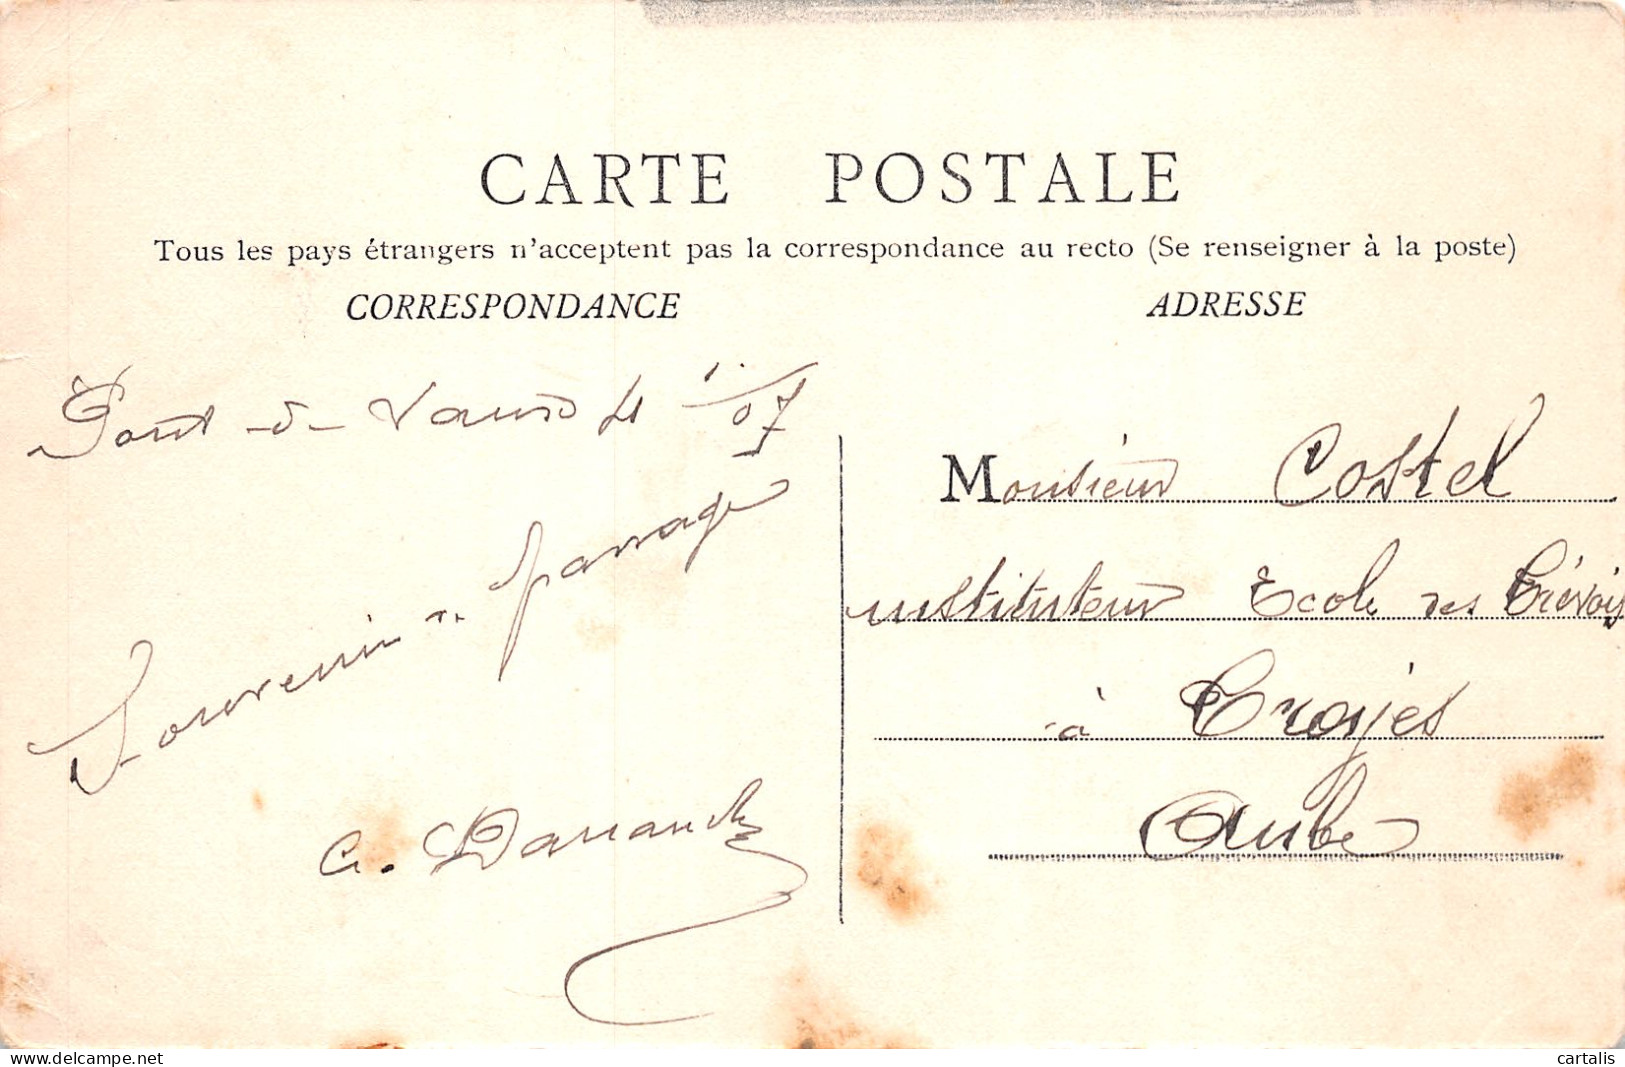 CARTE POSTALE
Tous les pays étrangers n'acceptent pas la correspondance au recto (Se renseigner à la poste)
CORRESPONDANCE
Pont-d-Vaux 4 /07
Souvenir passage
G.
ADRESSE
Monsieur Costel
instituteur Ecole des Trévois
à Troyes
Aube
cartalis